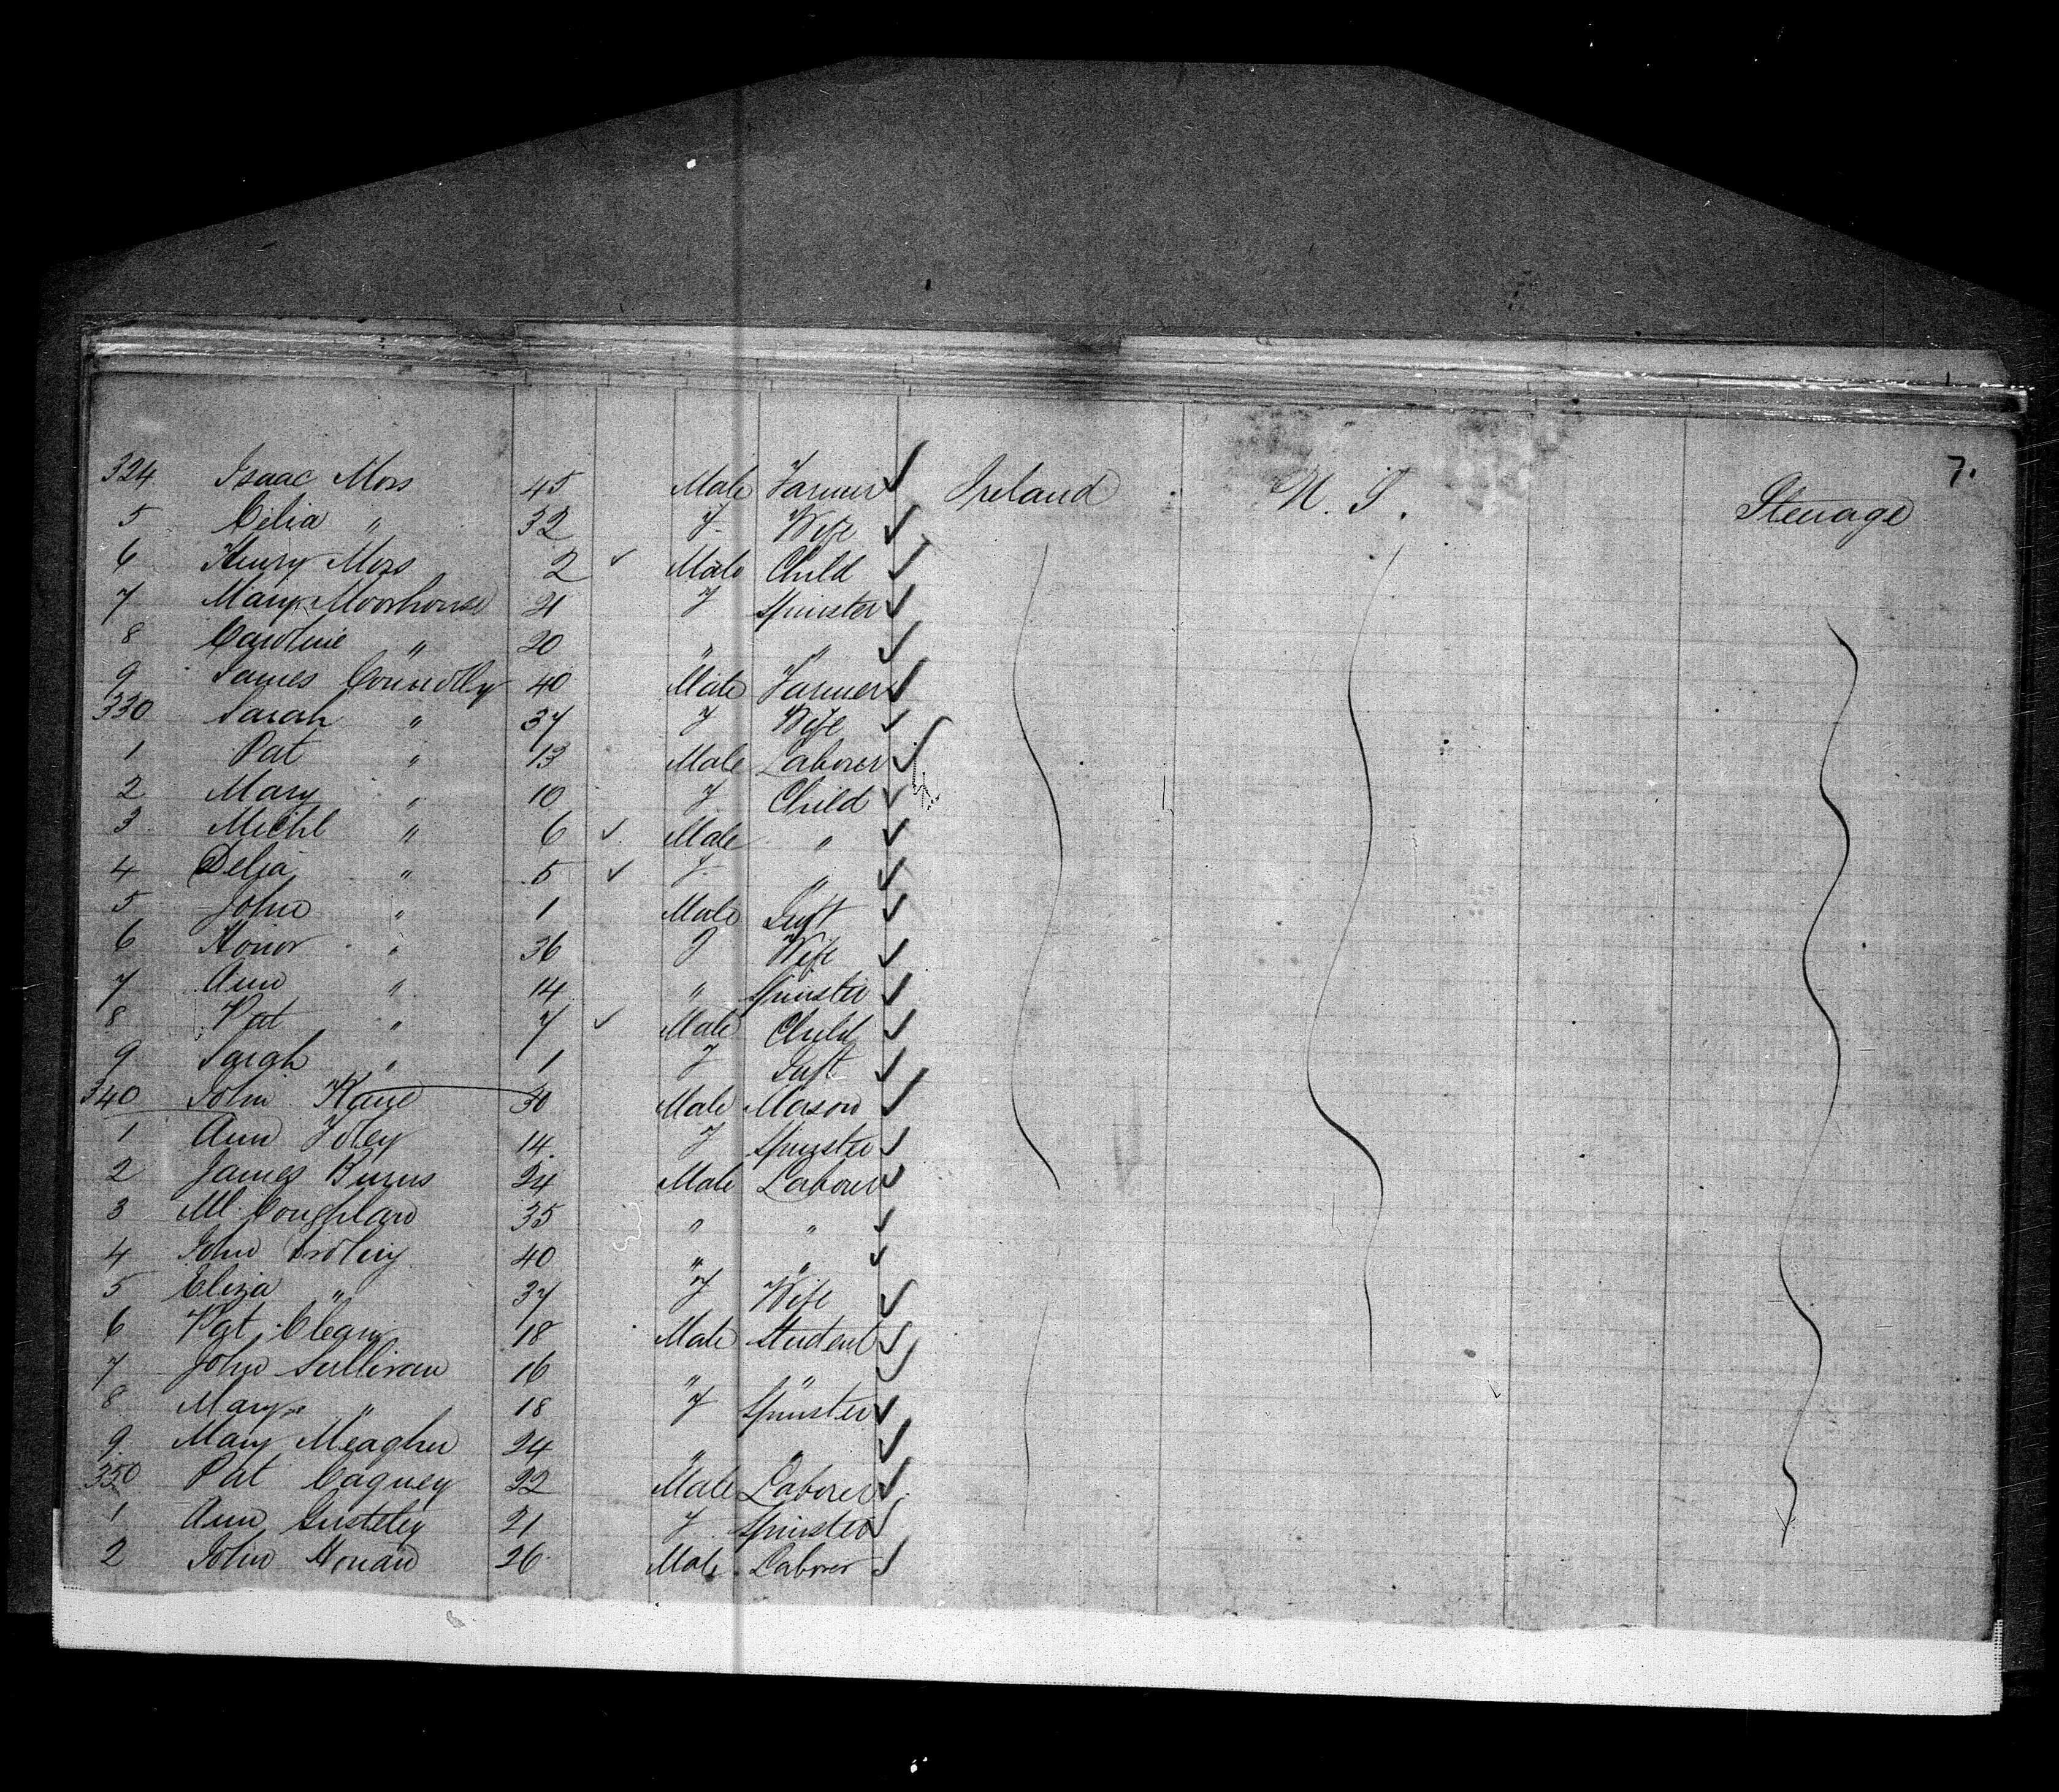 7.
324 Isaac Moss 45 Male Farmer Ireland U. S. Steerage
5 Celia " 32 F Wife
6 Henry Moss 2 Male Child
7 Mary Moorhouse 21 F Spinster
8 Caroline " 20 " "
9 James Connolly 40 Male Farmer
330 Sarah " 37 F Wife
1 Pat " 13 Male Laborer
2 Mary " 10 F Child
3 Michl " 6 Male "
4 Delia " 5 F "
5 John " 1 Male Inft
6 Honor " 36 F Wife
7 Ann " 14 " Spinster
8 Pat " 7 Male Child
9 Sarah " 1 F Inft
340 John Kane 30 Male Mason
1 Ann Foley 14 F Spinster
2 James Burns 24 Male Laborer
3 Ml. Coughlan 35 " "
4 John 40 " "
5 Eliza " 37 F Wife
6 Pat Cleary 18 Male Student
7 John Sullivan 16 " "
8 Mary " 18 F Spinster
9 Mary Meagher 24 " "
350 Pat Cagney 22 Male Laborer
1 Ann 21 F Spinster
2 John Honan 26 Male Laborer